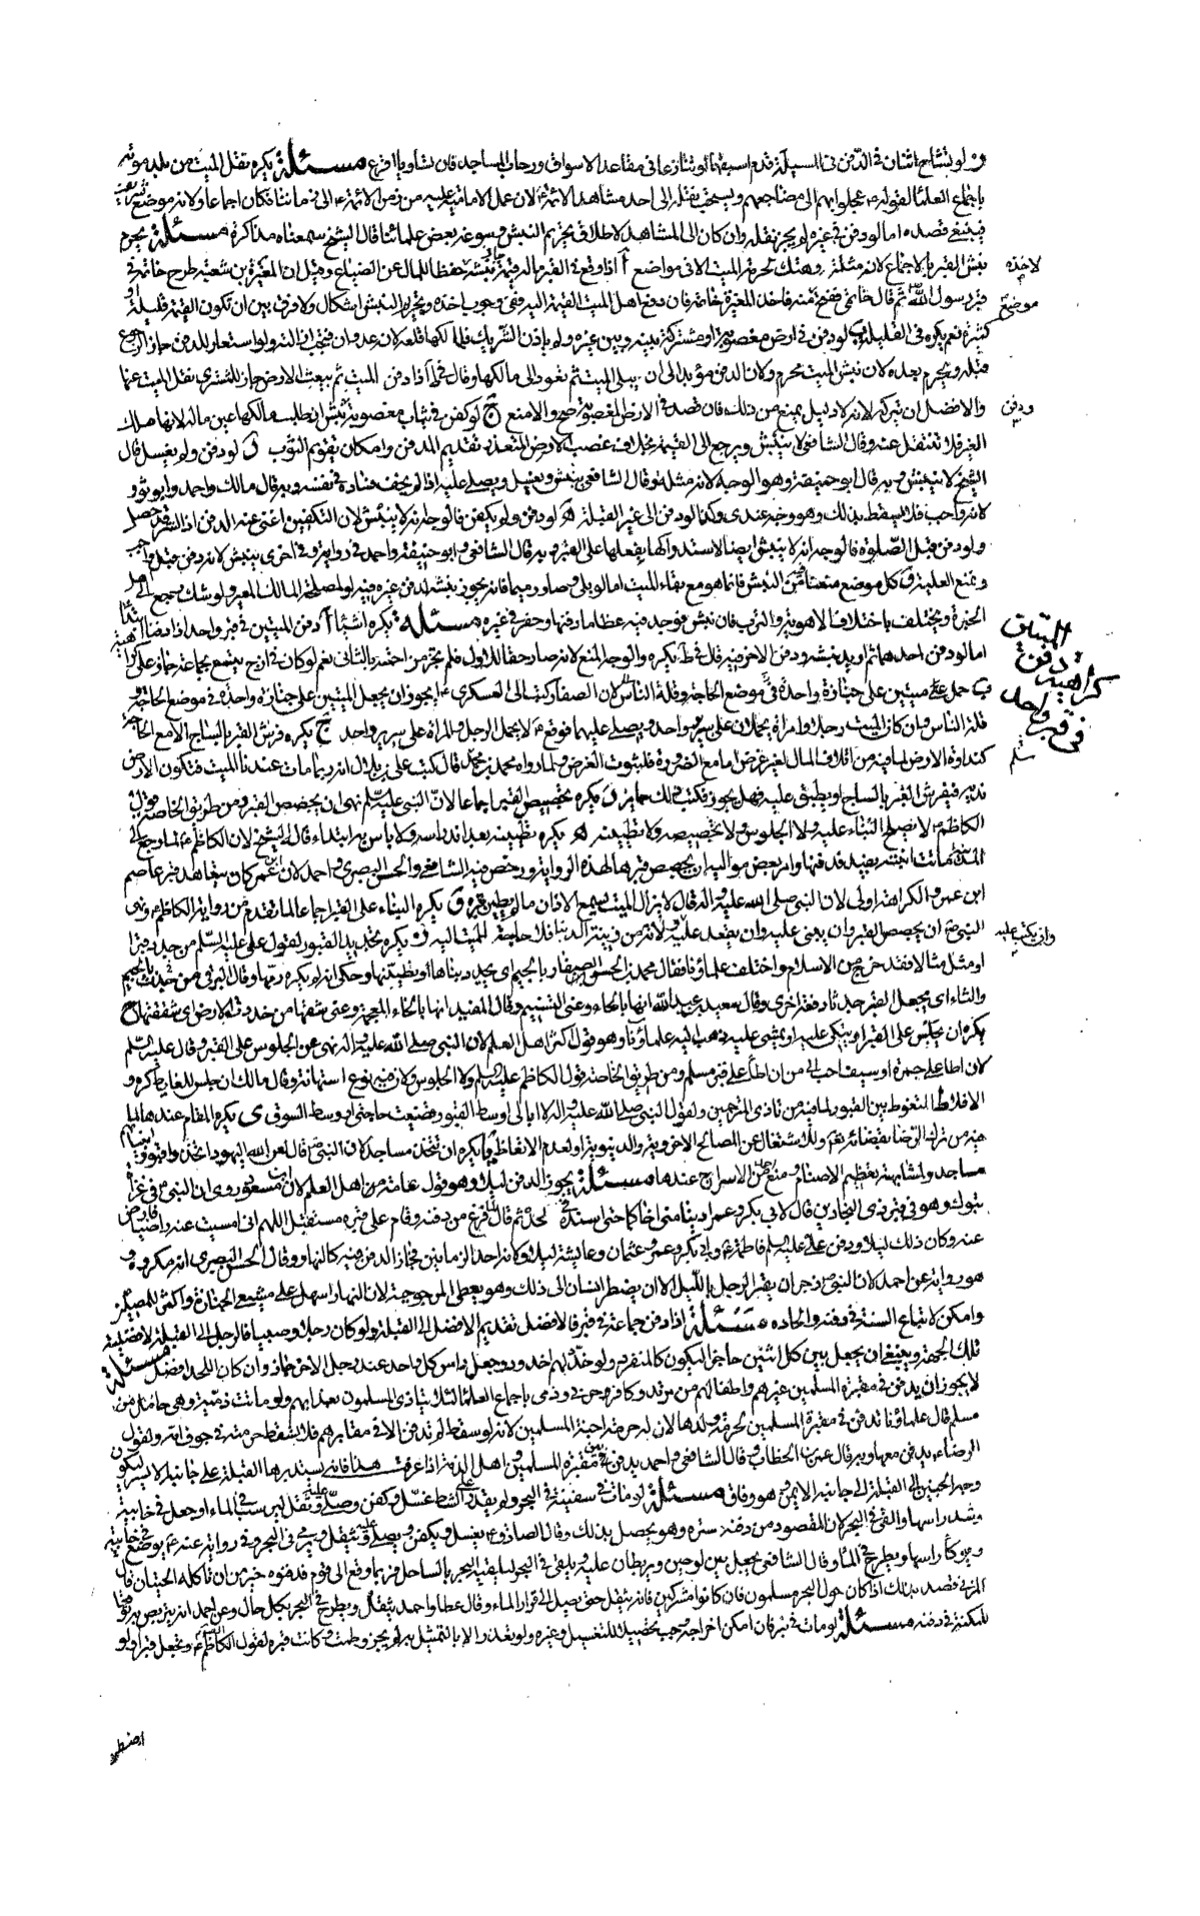 ولو تشاح اثنان في الدفن في المسبلة قدم اسبقهما كما لو تنازعا في مقاعد الاسواق ورحاب المساجد فان تساويا اقرع مسئلة يكره نقل الميت من بلد موته
باجماع العلماء لقوله عجلوا بهم الى مضاجعهم ويستحب نقله الى احد مشاهد الائمة لان عمل الامامية عليه من زمن الائمة الى زماننا فكان اجماعا ولانه موضع
فينبغي قصده اما لو دفن في غيره لم يجز نقله وان كان الى المشاهد لاطلاق تحريم النبش وسوغه بعض علمائنا قال الشيخ سمعناه مذاكرة مسئلة يحرم
نبش القبر بالاجماع لانه مثلة وهتك لحرمة الميت الا في مواضع آ اذا وقع في القبر ما له قيمة نبشه حفظا للمال عن الضياع وقيل ان المغيرة بن شعبة طرح خاتمه في
قبر رسول الله ثم قال خاتمي ففتح منه فاخذ المغيرة خاتمه فان دفع اهل الميت القيمة اليه ففي وجوب اخذه وتحريم النبش اشكال ولا فرق بين ان تكون القيمة قليلة او
كثيرة نعم يكره في القليلة ب لو دفن في ارض مغصوبة او مشتركة بينه وبين غيره ولم ياذن الشريك فلمالكها قلعه لانه عدوان فتجب ازالته ولو استعار للدفن جاز الرجوع
قبله ويحرم بعده لان نبش الميت محرم وكان الدفن مؤبدا الى ان يبلى الميت ثم تعود الى مالكها وقال اذا دفن الميت ثم بيعت الارض جاز للمشتري نقل الميت عنها
والافضل ان يتركه لانه لا دليل يمنع من ذلك فان قصد في الارض المغصوبة صح والا منع ج لو كفن في ثياب مغصوبة نبش ان طلب مالكها عين ماله لانها ملك
الغير فلا تنتقل عنه وقال الشافعي لا ينبش ويرجع الى القيمة بخلاف غصب الارض لتعذر تقديم المدفن وامكان تقويم الثوب د لو دفن ولم يغسل قال
الشيخ لا ينبش وبه قال ابو حنيفة وهو الوجه لانه مثلة وقال الشافعي ينبش ويغسل ويصلى عليه اذا لم يخف فساده في نفسه وبه قال مالك واحمد وابو ثور
لانه واجب فلا يسقط بذلك وهو وجه عندي وكذا لو دفن الى غير القبلة ه لو دفن ولم يكفن فالوجه انه لا ينبش لان التكفين اغنى عنه الدفن اذ الستر قد حصل
ولو دفن قبل الصلوة فالوجه انه لا ينبش ايضا لاستدراكها بفعلها على القبر وبه قال الشافعي وابو حنيفة واحمد في رواية وفي اخرى ينبش لانه دفن قبل واجب
كل موضع منعنا من النبش فانما هو مع بقاء الميت اما لو بلى وصار رميما فانه يجوز نبشه لدفن غيره فيه او لمصلحة المالك المعير ولو شك رجع الى اهل
الخبرة ويختلف باختلاف الاهوية والترب فان نبش فوجد فيه عظاما دفنها وحفر في غيره مسئلة يكره اشياء آ دفن الميتين في قبر واحد
اما لو دفن احدهما ثم اريد نبشه ودفن الاخر فيه قال في ط يكره والوجه المنع لانه صار حقا للاول فلم يجز مزاحمته بالثاني نعم لو كان في ازج يتسع لجماعة جاز على كراهية
ب حمل ميتين على جنازة واحدة في موضع الحاجة وقلة الناس لان الصفار كتب الى العسكري ايجوز ان يجعل الميتين على جنازة واحدة في موضع الحاجة و
قلة الناس وان كان الميت رجلا وامراة يحملان على سرير واحد ويصلى عليهما فوقع لا يحمل الرجل والمراة على سرير واحد ج يكره فرش القبر بالساج الا مع الحاجة
كنداوة الارض لما فيه من اتلاف المال لغير غرض اما مع الضرورة فلثبوت الغرض ولما رواه محمد بن محمد قال كتب علي بن بلال انه ربما مات عندنا الميت فتكون الارض
ندية فيفرش القبر بالساج او يطبق عليه فهل يجوز فكتب ذلك جايز د يكره تجصيص القبر اجماعا لان النبي عليه السلم نهى ان يجصص القبر ومن طريق الخاصة قول
الكاظم لا يصلح البناء عليه ولا الجلوس ولا تجصيصه ولا تطيينه ه يكره تطيينه بعد اندراسه ولا باس به ابتداء قاله الشيخ لان الكاظم لما رجع الى
المدينة ماتت ابنته بفيد فدفنها وامر بعض مواليه ان يجصص قبرها لهذه الرواية ورخص فيه الشافعي والحسن البصري واحمد لان ابن عمر كان يتعاهد قبر عاصم
ابن عمر والكراهة اولى لان النبي صلى الله عليه واله قال لا يزال الميت يسمع الاذان ما لم يطين قبره و يكره البناء على القبر اجماعا لما تقدم من رواية الكاظم ونهى
النبي ان يجصص القبر وان يبنى عليه وان يقعد عليه ولانه من زينة الدنيا فلا حاجة للميت اليه ز يكره تجديد القبور لقول علي عليه السلم من جدد قبرا
او مثل مثالا فقد خرج من الاسلام واختلف علماؤنا فقال محمد بن الحسن الصفار بالجيم اي يجدد بناها او تطيينها وحكى انه لم يكره رمها وقال البرقي من جدث بالجيم
والثاء اي يجعل القبر جدثا دفعة اخرى وقال سعد بن عبد الله انها بالحاء وعنى التسنيم وقال المفيد انها بالخاء المعجمة وعنى شقها من خددت الارض اي شققتها ح
يكره ان يجلس على القبر او يتكي عليه او يمشي عليه ذهب اليه علماؤنا وهو قول اكثر اهل العلم لان النبي صلى الله عليه واله نهى عن الجلوس على القبر وقال عليه السلم
لان اطأ على جمرة او سيف احب الي من ان اطأ على قبر مسلم ومن طريق الخاصة قول الكاظم عليه السلم ولا الجلوس ولان فيه نوع استهانة وقال مالك ان جلس للغايط كره و
الا فلا ط التغوط بين القبور لما فيه من تاذي المترحمين ولقول النبي صلى الله عليه واله لا ابالي اوسط القبور قضيت حاجتي او وسط السوق ي يكره المقام عندها لما
فيه من ترك الرضا بقضائه تعالى وللاشتغال عن المصالح الاخروية والدنيوية او لعدم الاتعاظ يا يكره ان تتخذ مساجد لان النبي قال لعن الله اليهود اتخذوا قبور انبيائهم
مساجد ولمشابهته بتعظيم الاصنام ومنع من الاسراج عندها مسئلة يجوز الدفن ليلا وهو قول عامة من اهل العلم لان ابن مسعود روى ان النبي في غزاة
تبوك وهو في قبر ذي البجادين قال لابي بكر وعمر ادنيا مني اخاكما حتى اسنده في لحده ثم قال لما فرغ من دفنه وقام على قبره مستقبل القبلة اللهم اني امسيت عنه راضيا فارض
عنه وكان ذلك ليلا ودفن علي عليه السلم فاطمة وابو بكر وعمر وعثمان وعايشة ليلا ولانه احد الزمانين فجاز الدفن فيه كالنهار وقال الحسن البصري انه مكروه و
هو رواية عن احمد لان النبي زجر ان يقبر الرجل بالليل الا ان يضطر انسان الى ذلك وهو يعطي المرجوحية لان النهار اسهل على متبعي الجنازة واكثر للمصلين
وامكن لاتباع السنة في دفنه والحاده مسئلة اذا دفن جماعة في قبر فالافضل تقديم الافضل الى القبلة ولو كان رجلا وصبيا فالرجل الى القبلة لافضلية
تلك الجهة وينبغي ان يجعل بين كل اثنين حاجز ليكون كالمنفرد ولو خد لهم اخدود وجعل راس كل واحد عند رجل الاخر جاز وان كان اللحد افضل مسئلة
لا يجوز ان يدفن في مقبرة المسلمين غيرهم واطفالهم من مرتد وكافر حربي وذمي باجماع العلماء لئلا يتاذى المسلمون بعذابهم ولو ماتت ذمية وهي حامل من
مسلم قال علماؤنا تدفن في مقبرة المسلمين لحرمة ولدها لان له حرمة اجنة المسلمين لانه لو سقط لم يدفن الا في مقابرهم فلا تسقط حرمته في جوف امه ولقول
الرضاء يدفن معها وبه قال عمر بن الخطاب وقال الشافعي واحمد يدفن بين مقبرة المسلمين واهل الذمة اذا عرفت هذا فانه يستدبر بها القبلة على جانبها الايسر ليكون
وجه الجنين الى القبلة الى جانبه الايمن وهو وفاق مسئلة لو مات في سفينة في البحر ولم يقدر على الشط غسل وكفن وصلى عليه وثقل ليرسب في الماء او جعل في خابية
وشد راسها والقي في البحر لان المقصود من دفنه ستره وهو يحصل بذلك وقال الصادق يغسل ويكفن ويصلى عليه ويثقل ويرمى في البحر وفي رواية عنه يوضع في خابية
ويوكأ راسها ويطرح في الماء وقال الشافعي يجعل بين لوحين ويربطان عليه ويلقى في البحر ليلقيه البحر بالساحل فربما وقع الى قوم فدفنوه خير من ان تاكله الحيتان قال
المزني قصد بذلك اذا كان حول البحر مسلمون فان كانوا مشركين فانه يثقل حتى يصل الى قرار الماء وقال عطا واحمد يثقل ويطرح في البحر بكل حال وعن احمد انه يتربص به توقعا
للمكنة في دفنه مسئلة لو مات في بئر فان امكن اخراجه وجب تحصيلا للتغسيل وغيره ولو تعذر الا بالتمثيل به لم يجز وطمت وكانت قبره لقول الكاظم وتجعل قبرا ولو
اضطر
لاخذه
موضع
ودفن
كراهية دفن
الميتين
في قبر واحد
وان يكتب عليه